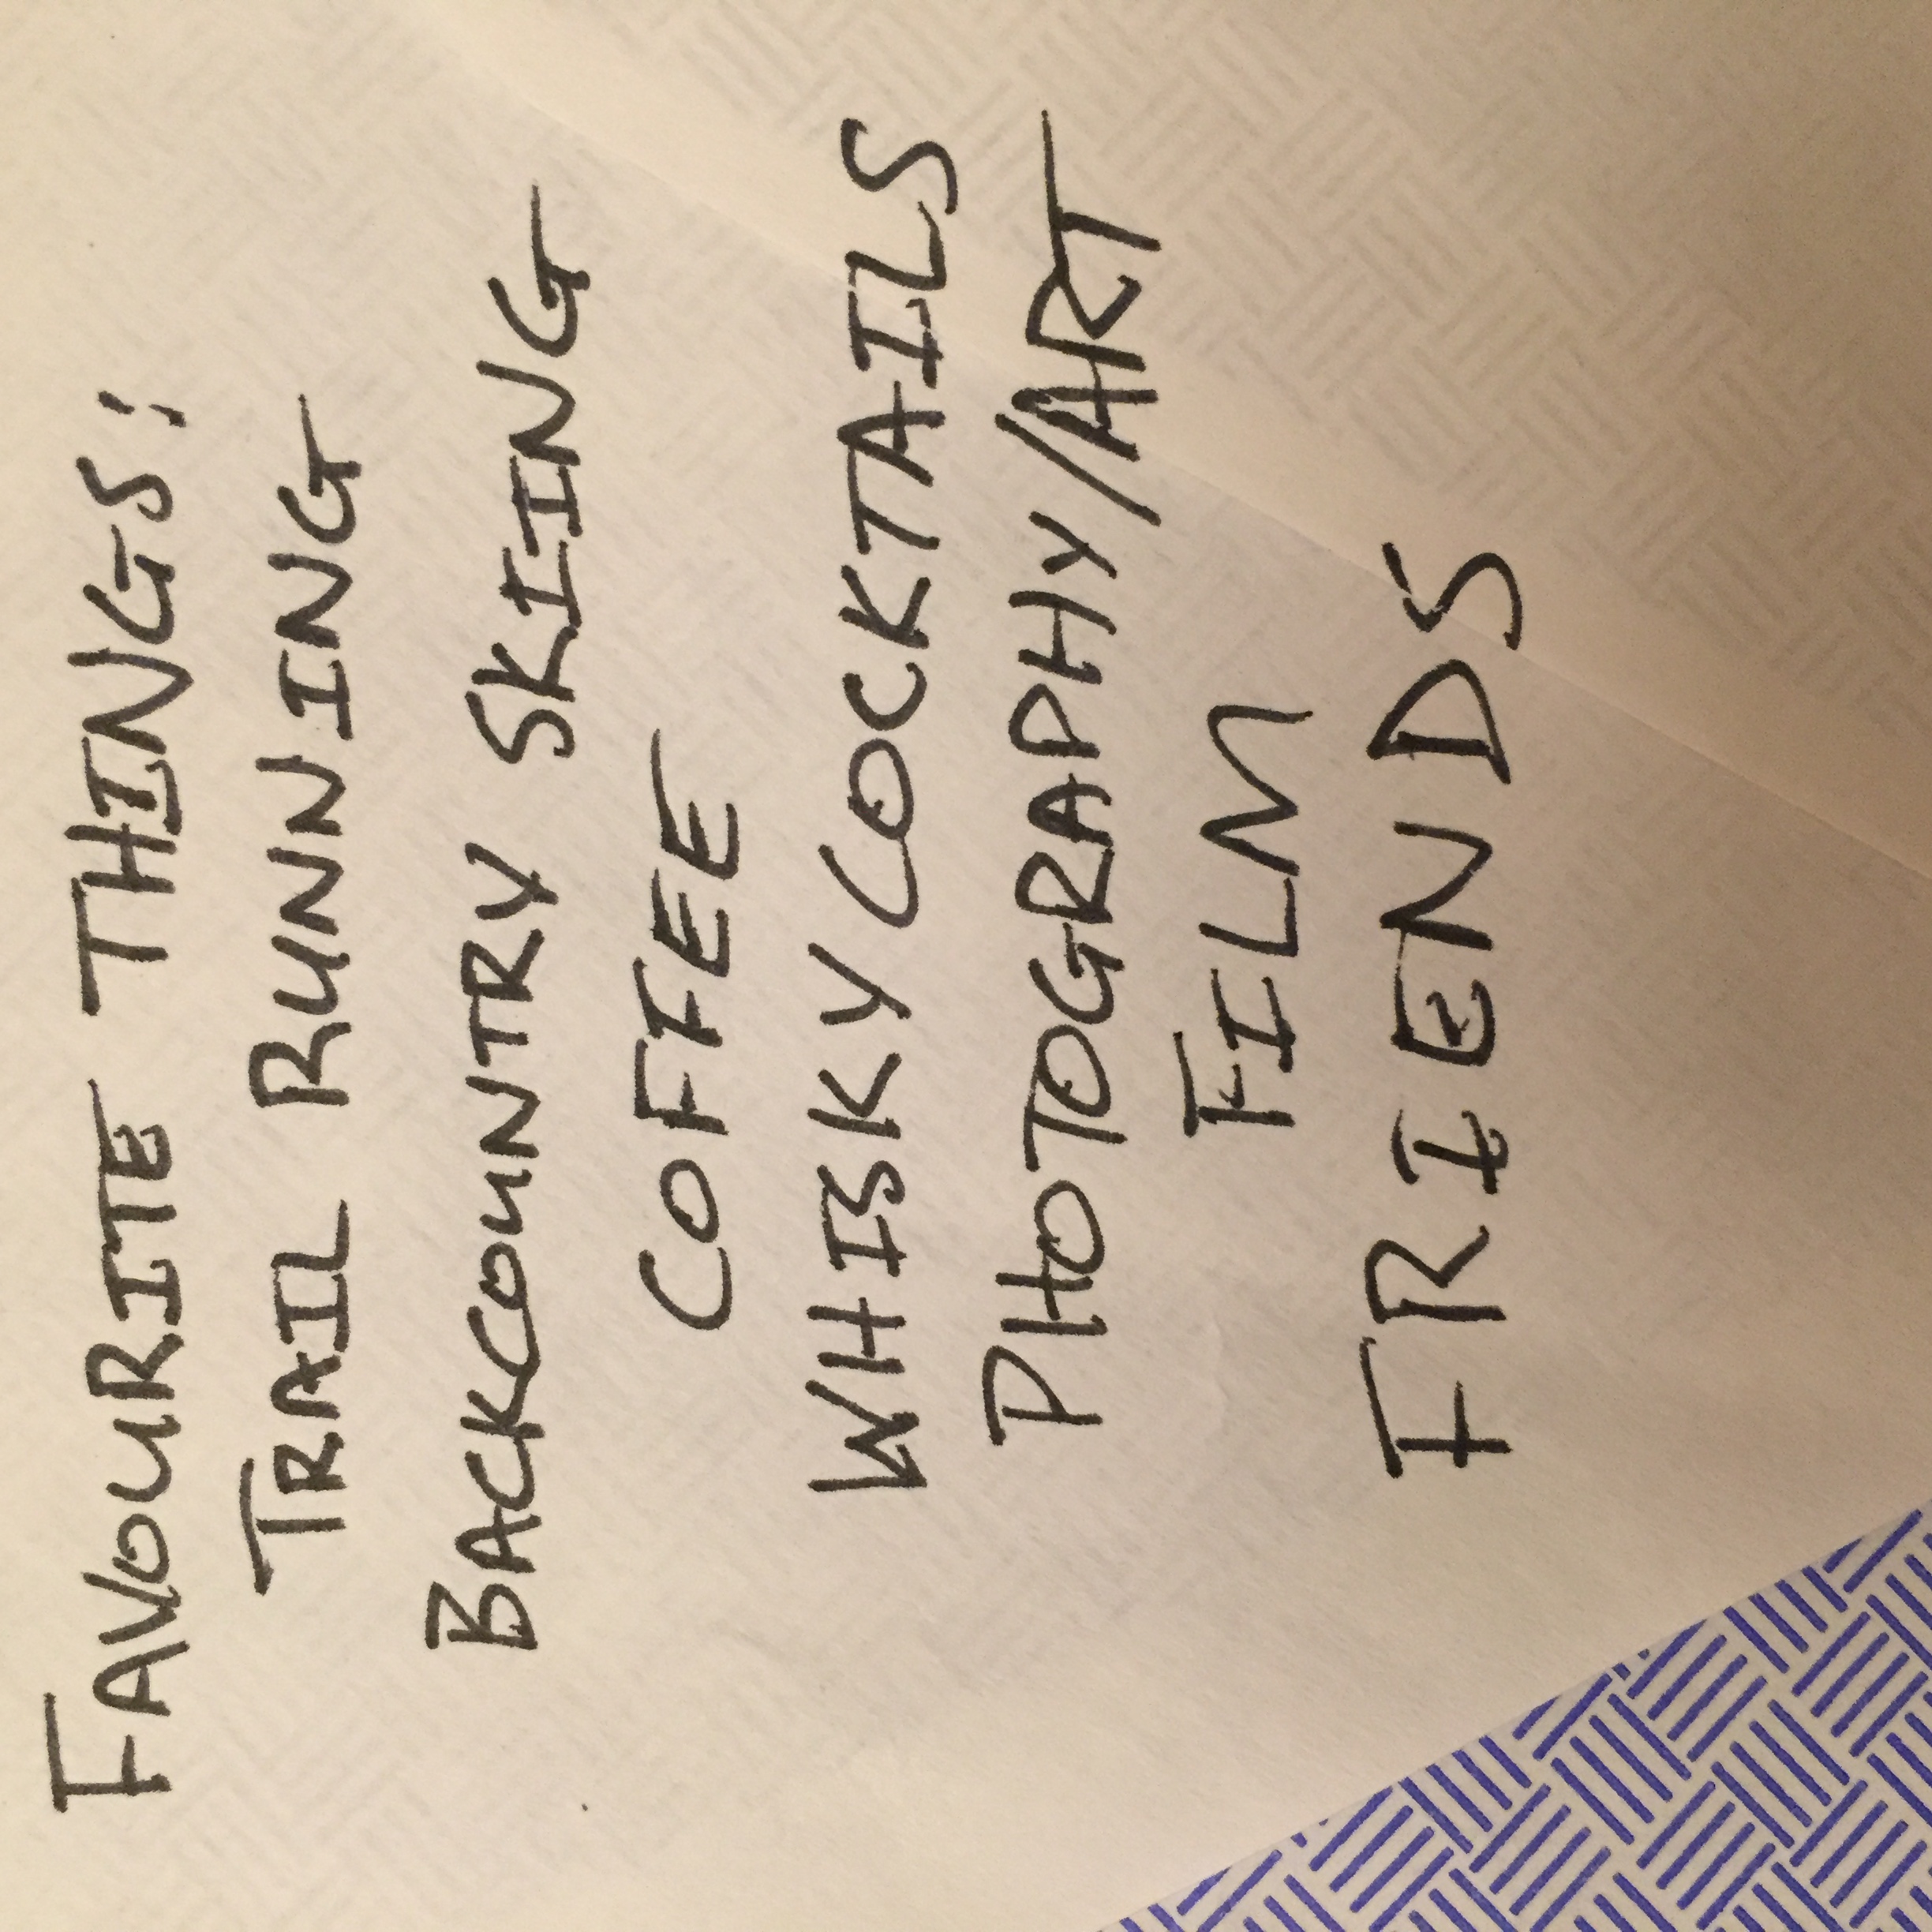 FAVOURITE THINGS:
TRAIL RUNNING
BACKCOUNTRY SKIING
COFFEE
WHISKY COCKTAILS
PHOTOGRAPHY/ART
FILM
FRIENDS